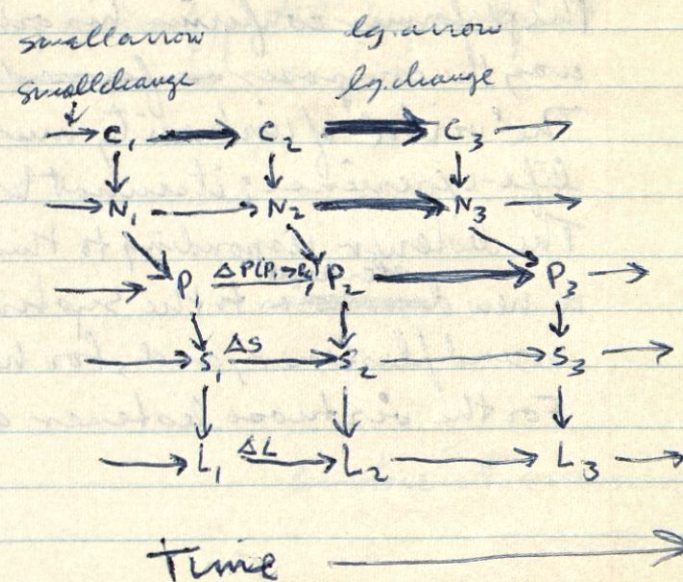 small arrow lg. arrow
small change lg. change
C₁ C₂ C₃
N₁ N₂ N₃
P₁ ΔP(P₁→P₂) P₂ P₃
S₁ ΔS S₂ S₃
L₁ ΔL L₂ L₃
Time